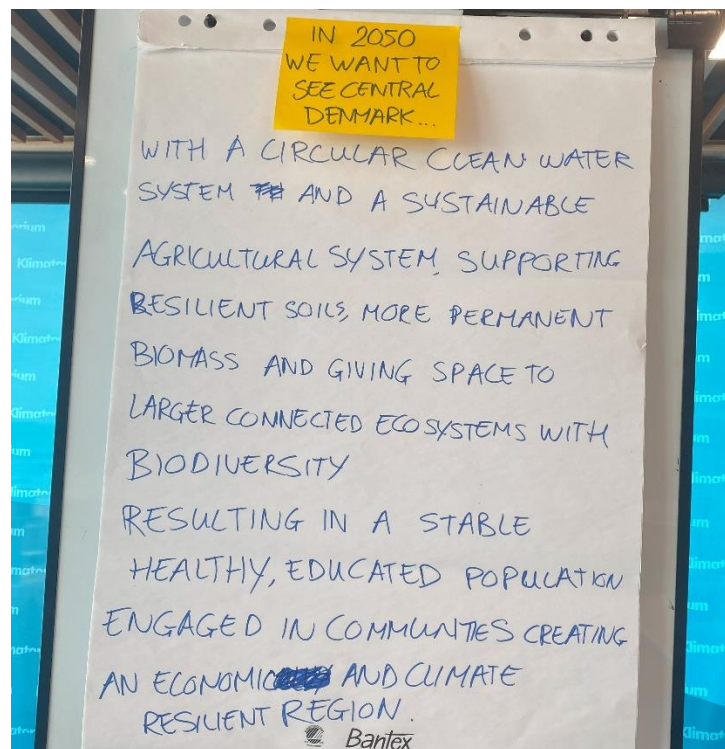 IN 2050
WE WANT TO
SEE CENTRAL
DENMARK...
WITH A CIRCULAR CLEAN WATER
SYSTEM AND A SUSTAINABLE
AGRICULTURAL SYSTEM, SUPPORTING
RESILIENT SOILS, MORE PERMANENT
BIOMASS AND GIVING SPACE TO
LARGER CONNECTED ECOSYSTEMS WITH
BIODIVERSITY
RESULTING IN A STABLE
HEALTHY, EDUCATED POPULATION
ENGAGED IN COMMUNITIES CREATING
AN ECONOMIC AND CLIMATE
RESILIENT REGION.
Bantex